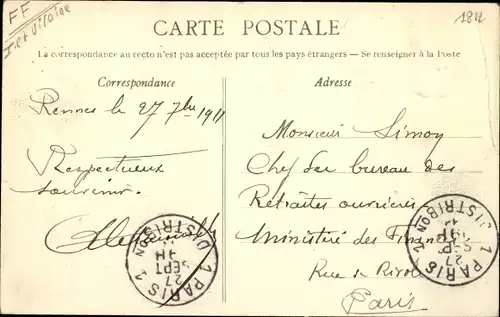 FF
Ille et Vilaine
1812
CARTE POSTALE
La correspondance au recto n'est pas acceptée par tous les pays étrangers — Se renseigner à la Poste
Correspondance
Adresse
Rennes le 27 7bre 1911
Respectueux
souvenir.
Monsieur Simon
Chef du bureau des
Retraites ouvrières
Ministère des Finances
Rue de Rivoli
Paris
PARIS 1
DISTRIBON
27
SEPT
11
PARIS 1
DISTRIBON
27
SEPT
11